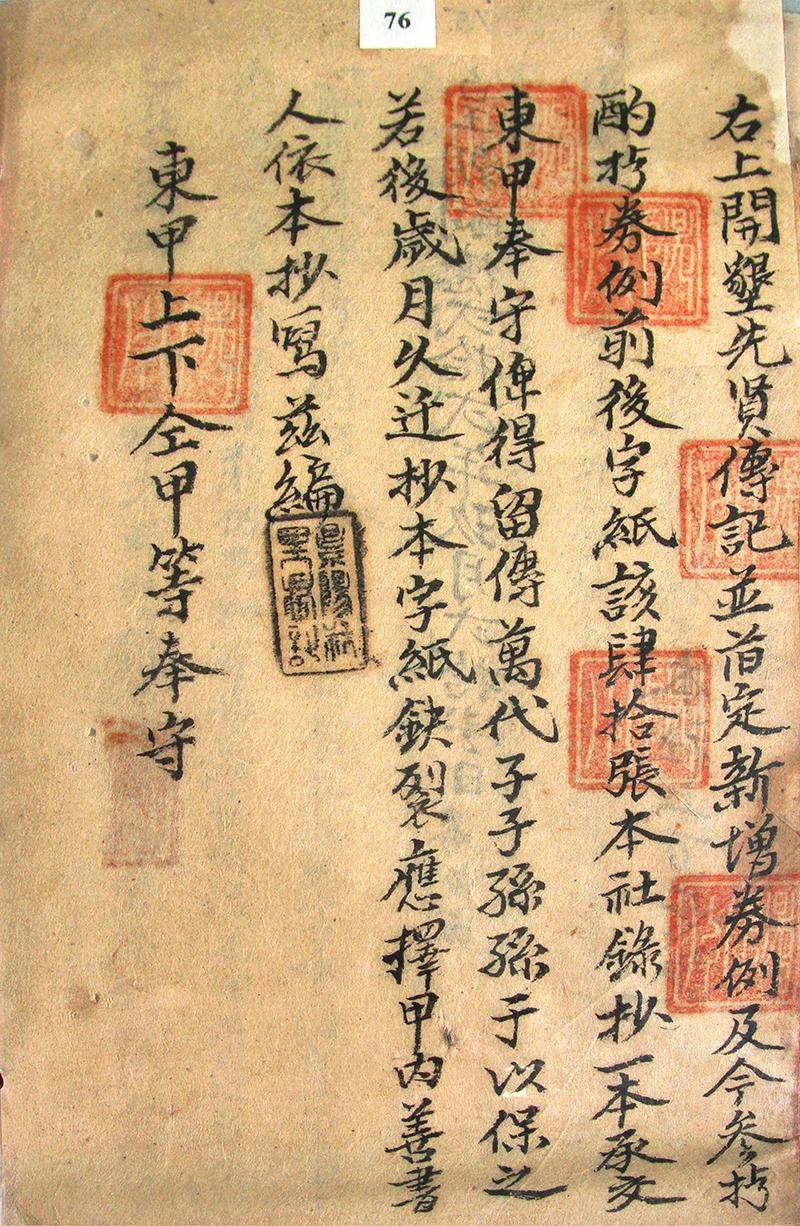 76
右上開墾先賢傳記並旨定新增券例及今參扵
酌扵券例前後字紙該肆拾張本社錄抄一本承交
東甲奉守俾得留傳萬代子子孫孫于以保之
若後歲月久迁抄本字紙鈌裂應擇甲內善書
人依本抄寫兹編
東甲上下仝甲等奉守